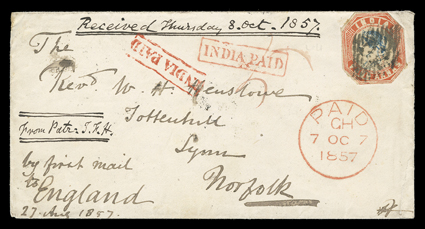 Received Thursday 8. Oct. 1857.
The
INDIA PAID
INDIA PAID
INDIA
Revd. W. H. Henslowe
Tottenhill
from Patr: J. F. H.
Lynn
by first mail
Norfolk
to
England
27 Aug 1857.
PAID
CH
7 OC 7
1857